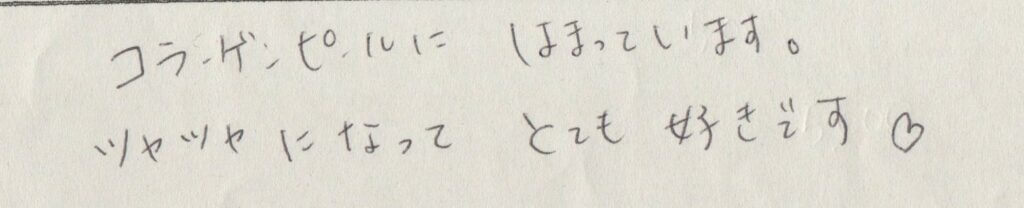 コラーゲンピールに はまっています。
ツヤツヤになって とても 好きです♡